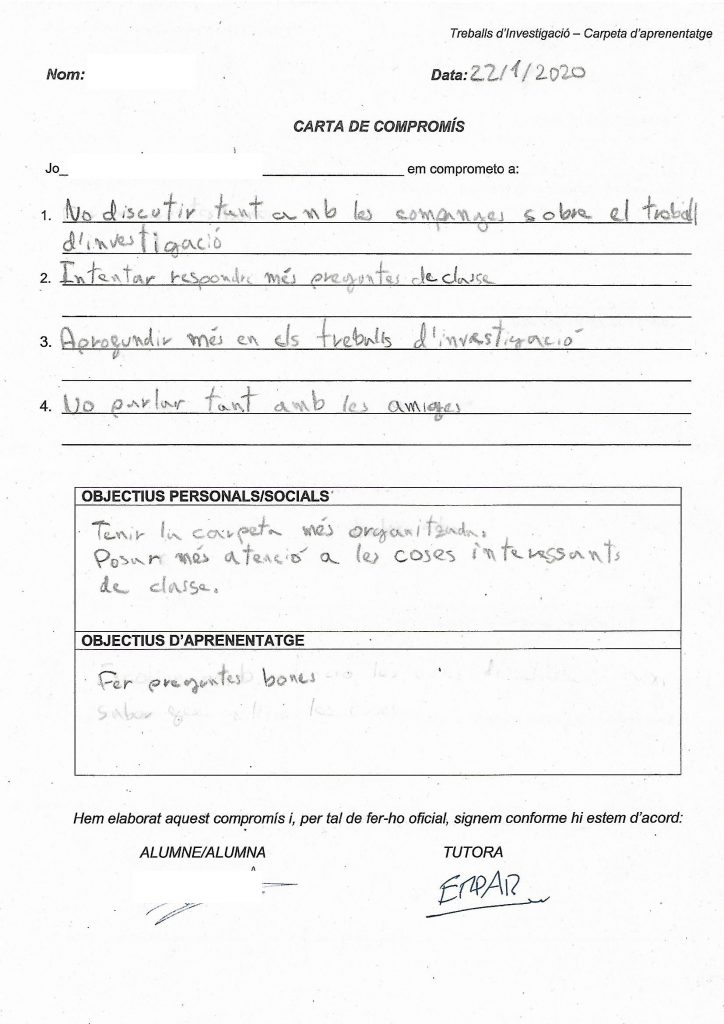 Treballs d'Investigació – Carpeta d'aprenentatge
Nom: Data: 22/1/2020
CARTA DE COMPROMÍS
Jo_ em comprometo a:
1. No discutir tant amb les companyes sobre el treball
d'investigació
2. Intentar respondre més preguntes de classe
3. Aprogundir més en els treballs d'investigació
4. No parlar tant amb les amigues
OBJECTIUS PERSONALS/SOCIALS
Tenir la carpeta més organitzada.
Posar més atenció a les coses interessants
de classe.
OBJECTIUS D'APRENENTATGE
Fer preguntes bones
Hem elaborat aquest compromís i, per tal de fer-ho oficial, signem conforme hi estem d'acord:
ALUMNE/ALUMNA TUTORA